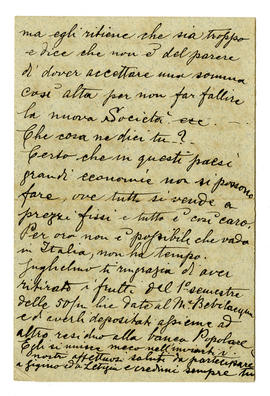 ma egli ritiene che sia troppo
e dice che non è del parere
di dover accettare una somma
così alta per non far fallire
la nuova Società ecc.
Che cosa ne dici tu?
Certo che in questi paesi
grandi economie non si possono
fare, ove tutto si vende a
prezzi fissi e tutto è così caro.
Per ora non è possibile che vada
in Italia, non ha tempo.
Guglielmo ti ringrazia di aver
ritirato i frutti del 1º semestre
delle 50/m lire dato al Mse Bevilacqua
e d'averli depositati assieme ad
altro residuo alla banca Popolare
Egli si unisce meco nell'inviarti i
nostri affettuosi saluti da partecipare
a Gigino da Letizia e credimi sempre tu